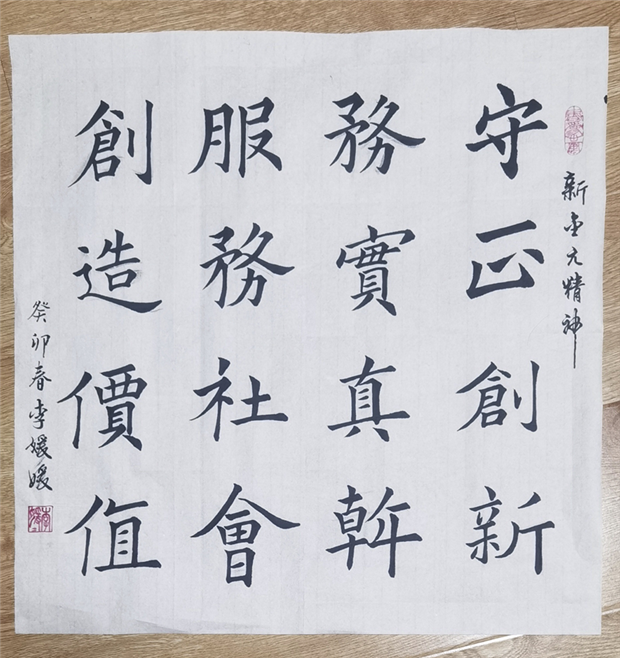 新金元精神
守正創新
務實真幹
服務社會
創造價值
癸卯春李媛媛